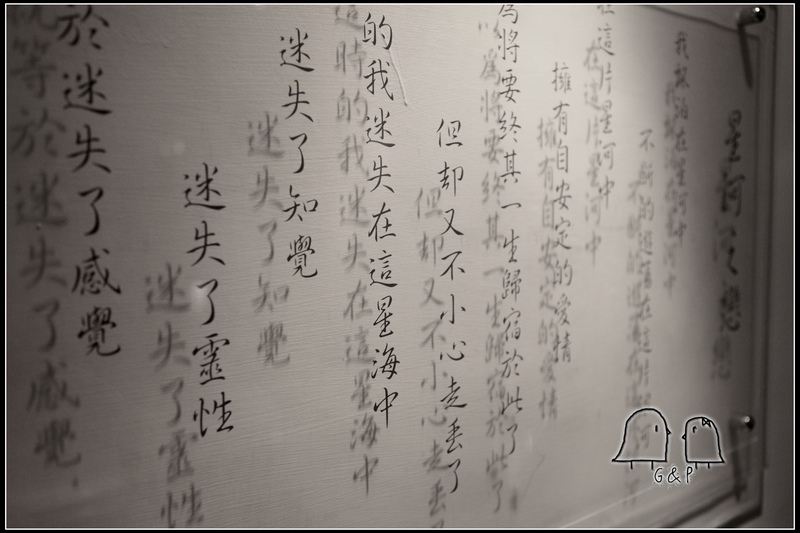 星河戀
我泊在星河中
不斷的遊蕩在這
在這片星河中
擁有自安定的愛情
為將要終其一生歸宿於此了
但卻又不小心走丟了
的我迷失在這星海中
迷失了知覺
迷失了靈性
於迷失了感覺
G&P